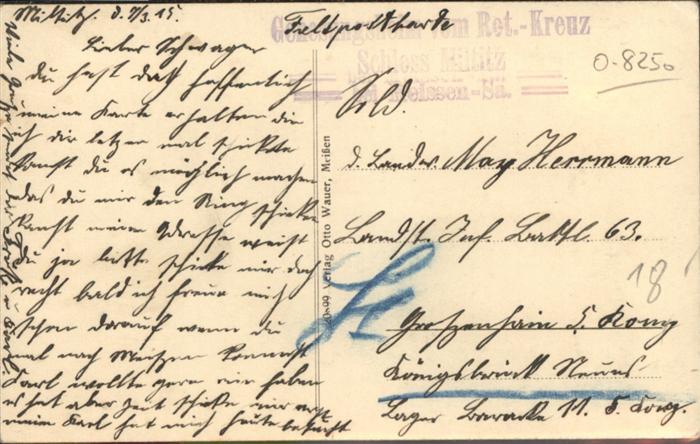 Miltitz, d. 7/3. 15.
Feldpostkarte
Genesungsheim vom Rot.-Kreuz
Schloss Miltitz
bei Meissen-Sa.
0-8250
Lieber Schwager
Du hast doch hoffentlich
meine Karte erhalten die
ich dir letzer mal schickte
kanst du es möglich machen
das du mir den Ring schickst
kanst meine Adresse weist
Du ja bitte schicke mir doch
recht bald ich freue mich
schon darauf wenn du
mal nach Meißen kommst
Karl wollte gern ein haben
er hat aber Zeit schicke mir
mein Karl hat mich heute besucht
Viele Grüße
Otto Wauer, Meißen
Verlag
Sold.
d. Landw. Max Herrmann
Landst. Inf. Battl. 63.
18
Großenhain 5. Komp
Königsbrück Neues
Lager Baracke 11. 5. Komp.